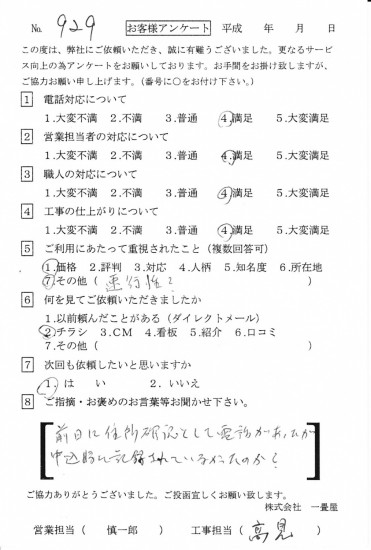 № 929 お客様アンケート 平成 年 月 日
この度は、弊社にご依頼いただき、誠に有難うございました。更なるサービ
ス向上の為アンケートをお願いしております。お手間をお掛け致しますが、
ご協力お願い申し上げます。(番号に○をお付け下さい。)
1 電話対応について
1.大変不満 2.不満 3.普通 4.満足 5.大変満足
2 営業担当者の対応について
1.大変不満 2.不満 3.普通 4.満足 5.大変満足
3 職人の対応について
1.大変不満 2.不満 3.普通 4.満足 5.大変満足
4 工事の仕上がりについて
1.大変不満 2.不満 3.普通 4.満足 5.大変満足
5 ご利用にあたって重視されたこと(複数回答可)
1.価格 2.評判 3.対応 4.人柄 5.知名度 6.所在地
7.その他( )
6 何を見てご依頼いただきましたか
1.以前頼んだことがある(ダイレクトメール)
2.チラシ 3.CM 4.看板 5.紹介 6.口コミ
7.その他( )
7 次回も依頼したいと思いますか
1.は い 2.いいえ
8 ご指摘・お褒めのお言葉等お聞かせ下さい。
前日に住所確認として電話があったが
申込時に記録されていなかったのか?
ご協力ありがとうございました。ご投函宜しくお願い致します。
株式会社 一畳屋
営業担当( 慎一郎 ) 工事担当( 高見 )